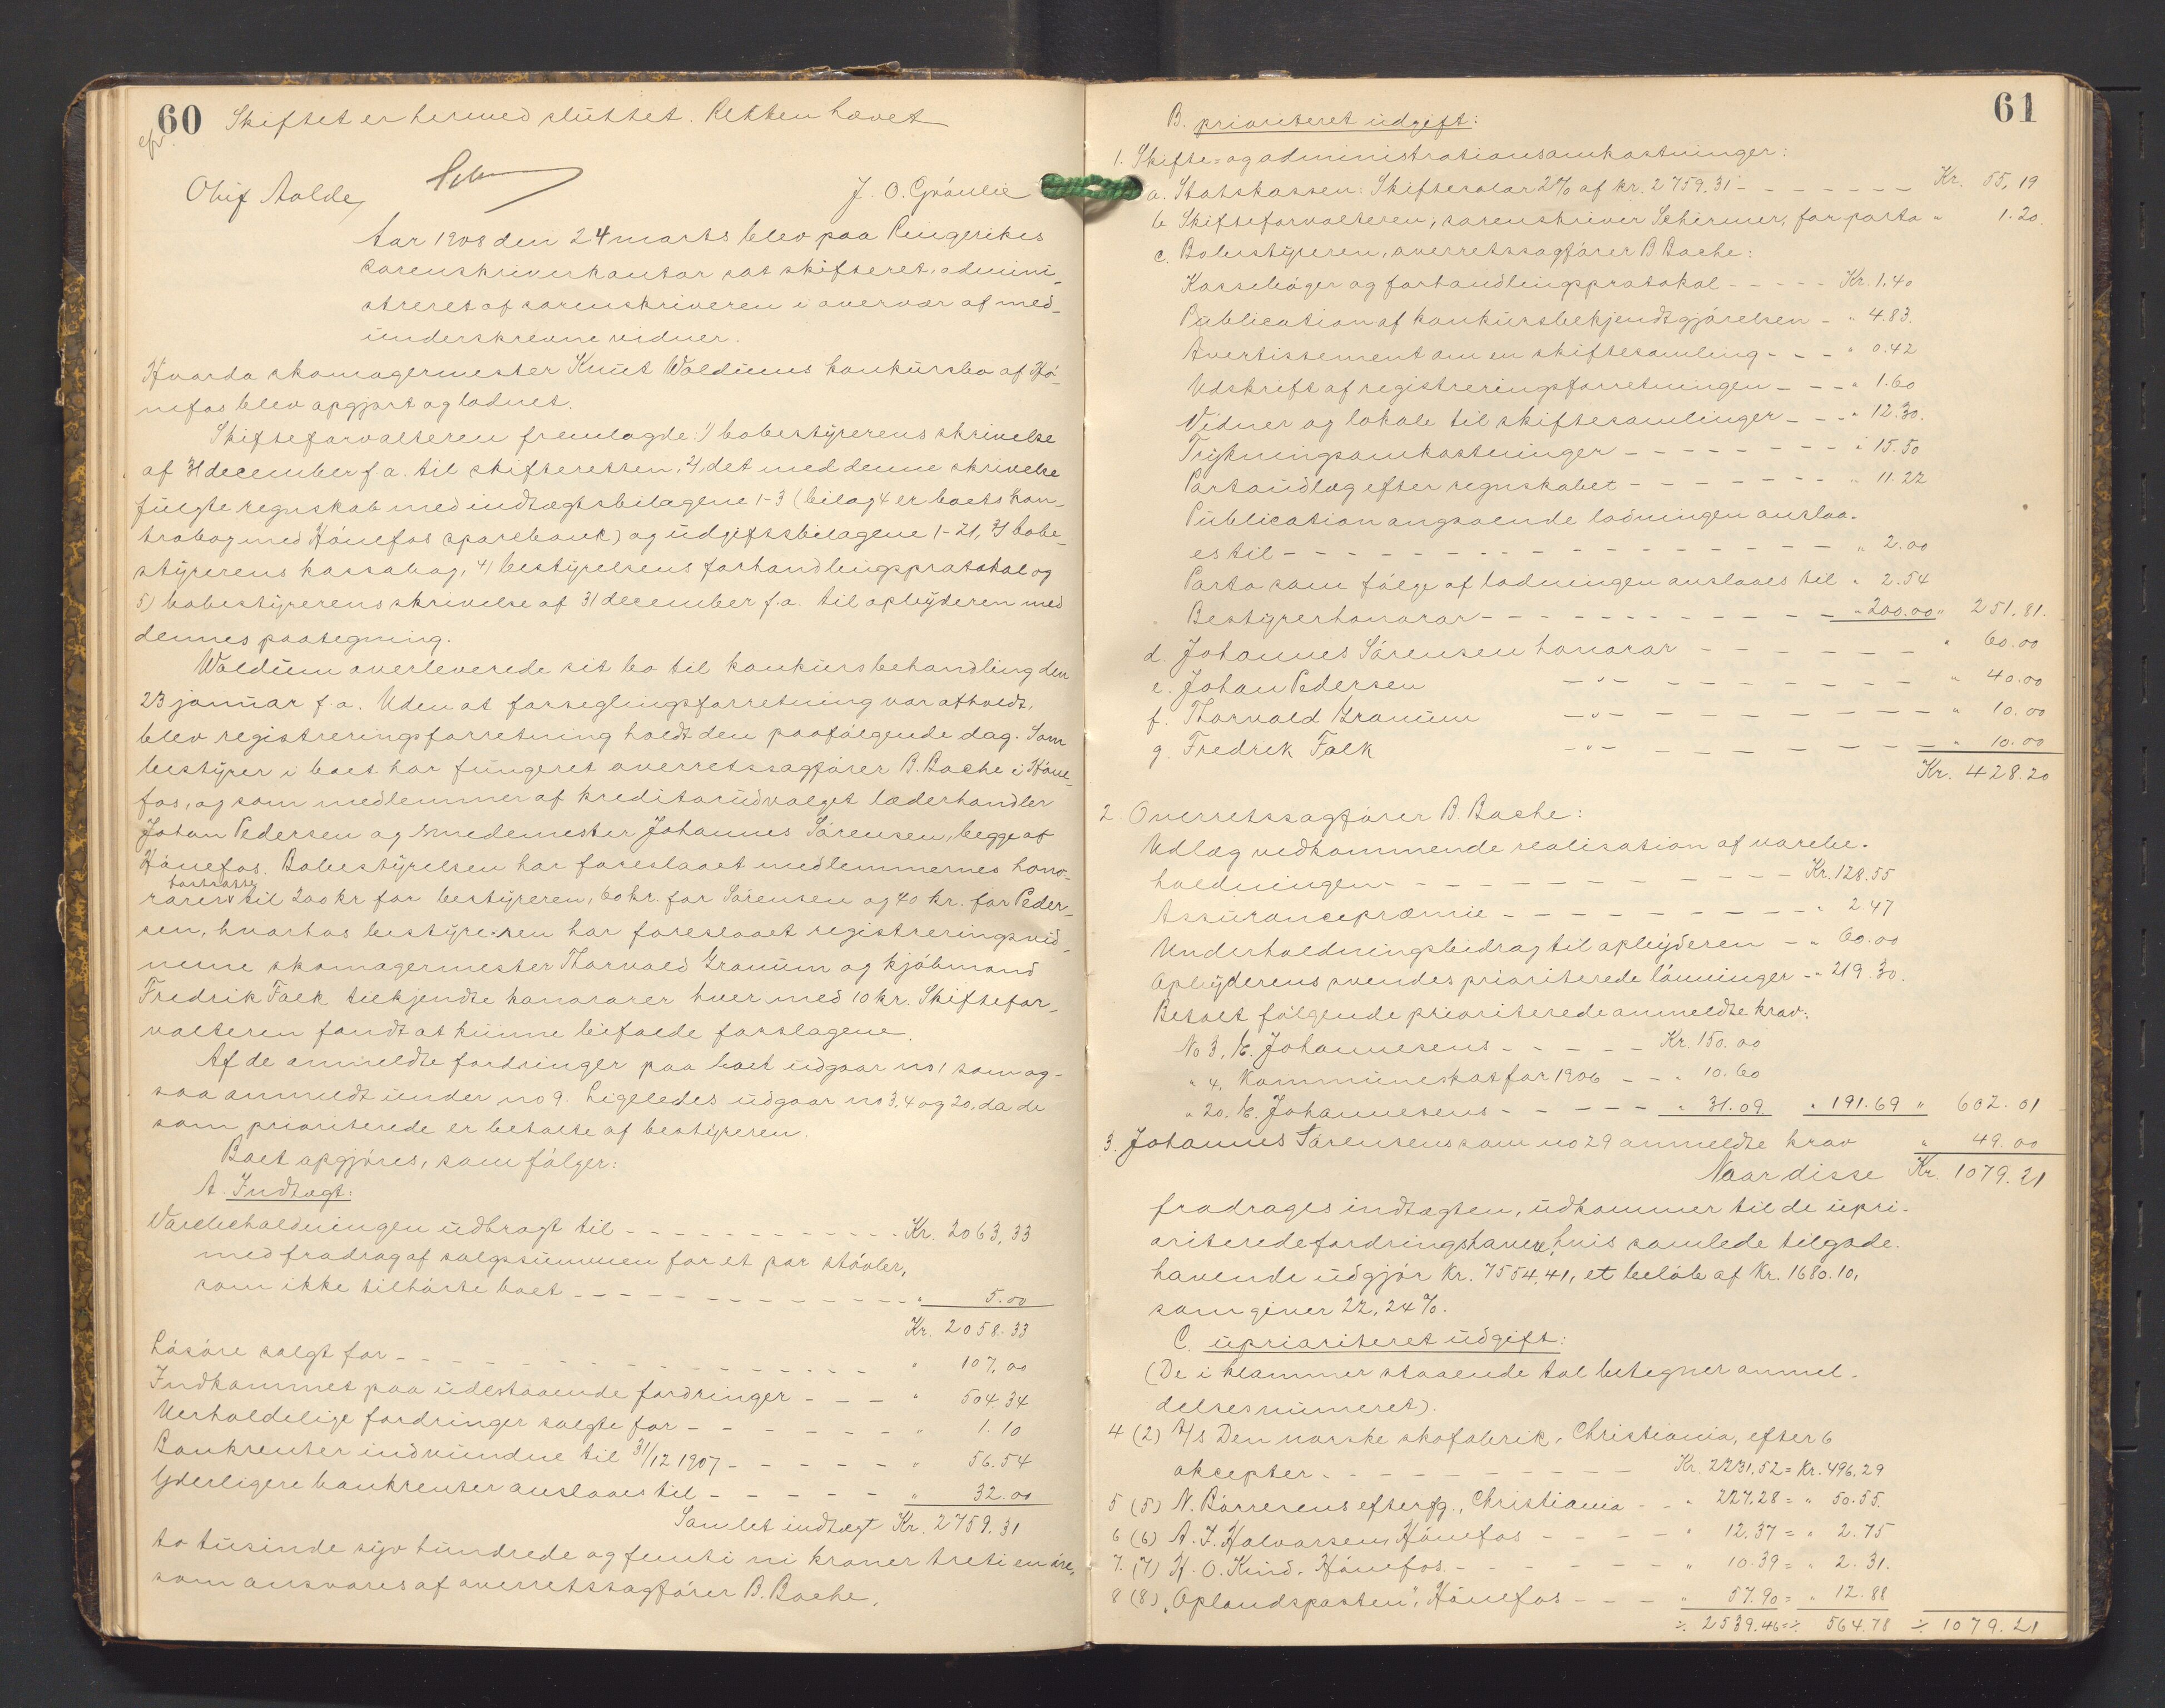 60
Skiftet er hermed sluttet. Retten hævet
Oluf Aolde,
J. O. Gråulie
Aar 1908 den 24 marts blev paa Ringerikes
sorenskriverkontor sat skifteret, admini-
streret af sorenskriveren i overvær af med-
underskrevne vidner.
Hvorda skomagermester Knut Woldums konkursbo af Hø-
nefos blev opgjort og lodnet.
Skifteforvalteren fremlagde: 1) bobestyrerens skrivelse
af 31 december f. a. til skifteretten, 2, det med denne skrivelse
fulgte regnskab med indtægtsbilagene 1-3 (bilag 4 er boets kon-
trabog med Hønefos sparebank) og udgiftsbilagene 1-21, 3) bobe-
styrerens kassabog, 4) bestyrelsens forhandlingsprotokol og
5) bobestyrerens skrivelse af 31 december f. a. til opbyderen med
dennes paategning.
Woldum overleverede sit bo til konkursbehandling den
23 januar f. a. Uden at forseglingsforretning var afholdt,
blev registreringsforretning holdt den paafølgende dag. Som
bestyrer i boet har fungeret overretssagfører B. Bache i Høne-
fos, og som medlemmer af kreditorudvalget læderhandler
Johan Pedersen og smedemester Johannes Sørensen, begge af
Hønefos. Bobestyrelsen har foreslaaet medlemmernes hono-
rarer fastsatte til 200 kr for bestyreren, 60 kr. for Sørensen og 40 kr. for Peder-
sen, hvorhos bestyreren har foreslaaet registreringsvid-
nerne skomagermester Thorvald Granum og kjøbmand
Fredrik Falk tilkjendte honorarer hver med 10 kr. Skiftefor-
valteren fandt at kunne bifalde forslagene.
Af de anmeldte fordringer paa boet udgaar no 1 som og-
saa anmeldt under no 9. Ligeledes udgaar no 3, 4 og 20, da de
som prioriterede er betalte af bestyreren.
Boet opgjøres, som følger:
A. Indtægt:
Varebeholdningen udbragt til - - - Kr. 2063,33
med fradrag af salgssummen for et par støvler,
som ikke tilhørte boet - - - " 5.00
Kr. 2058.33
Løsøre solgt for - - - " 107,00
Indkommet paa udestaaende fordringer - - - " 504.34
Uerholdelige fordringer solgte for - - - " 1.10
Bankrenter indvundne til 31/12 1907 - - - " 56.54
Yderligere bankrenter anslaaes til - - - " 32.00
Samlet indtægt Kr. 2759.31
to tusinde syv hundrede og femti ni kroner treti en øre,
som ansvares af overretssagfører B. Bache.
61
B. prioriteret udgift:
1. Skifte- og administrationsomkostninger:
a. Statskassen: Skiftesalar 2% af kr. 2759.31 - - - Kr. 55,19
b. Skifteforvalteren, sorenskriver Schirmer, for porto " 1.20
c. Bobestyreren, overretssagfører B Bache:
Kassebøger og forhandlingsprotokol - - - Kr. 1.40
Publication af konkursbekjendtgjørelsen - " 4.83.
Avertissement om en skiftesamling - - - " 0.42
Udskrift af registreringsforretningen - - - " 1.60
Vidner og lokale til skiftesamlinger - - - " 12.30.
Trykningsomkostninger - - - " 15.50
Portoudlæg efter regnskabet - - - " 11.22
Publication angaaende lodningen anslaa-
es til - - - " 2.00
Porto som følge af lodningen anslaaes til " 2.54
Bestyrerhonorar - - - " 200.00 " 251.81.
d. Johannes Sørensen honorar - - - " 60.00
e. Johan Pedersen - " - - - - " 40.00
f. Thorvald Granum - " - - - - " 10.00
g. Fredrik Falk - " - - - - " 10.00
Kr. 428.20
2. Overretssagfører B. Bache:
Udlæg vedkommende realisation af varebe-
holdningen - - - Kr. 128.55
Assurancepræmie - - - " 2.47
Underholdningsbidrag til opbyderen - " 60.00
Opbyderens svendes prioriterede lønninger - " 219.30.
Betalt følgende prioriterede anmeldte krav:
No 3, E. Johannesens - - - Kr. 150.00
" 4, Kommuneskat for 1906 - - " 10.60
" 20. E. Johannesens - - - " 31.09 " 191.69 " 602.01
3. Johannes Sørensens som no 29 anmeldte krav " 49.00
Naar disse Kr. 1079.21
fradrages indtægten, udkommer til de upri-
oriterede fordringshavere, hvis samlede tilgode-
havende udgjør Kr. 7554.41, et beløb af Kr. 1680.10,
som giver 22,24%.
C. uprioriteret udgift:
(De i klammer staaende tal betegner anmel-
delsesnumeret).
4 (2) A/s Den norske skofabrik, Christiania, efter 6
akcepter - - - Kr. 2231.52 = Kr. 496.29
5 (5) N. Børresens efterfg., Christiania - - " 227.28 = " 50.55.
6 (6) A. J. Halvorsen, Hønefos - - - " 12.37 = " 2.75
7. (7) H. O. Kind, Hønefos. - - - " 10.39 = " 2.31.
8 (8) "Oplandsposten", Hønefos - - - " 57.90 = " 12.88
÷ 2539.46 = ÷ 564.78 ÷ 1079.21